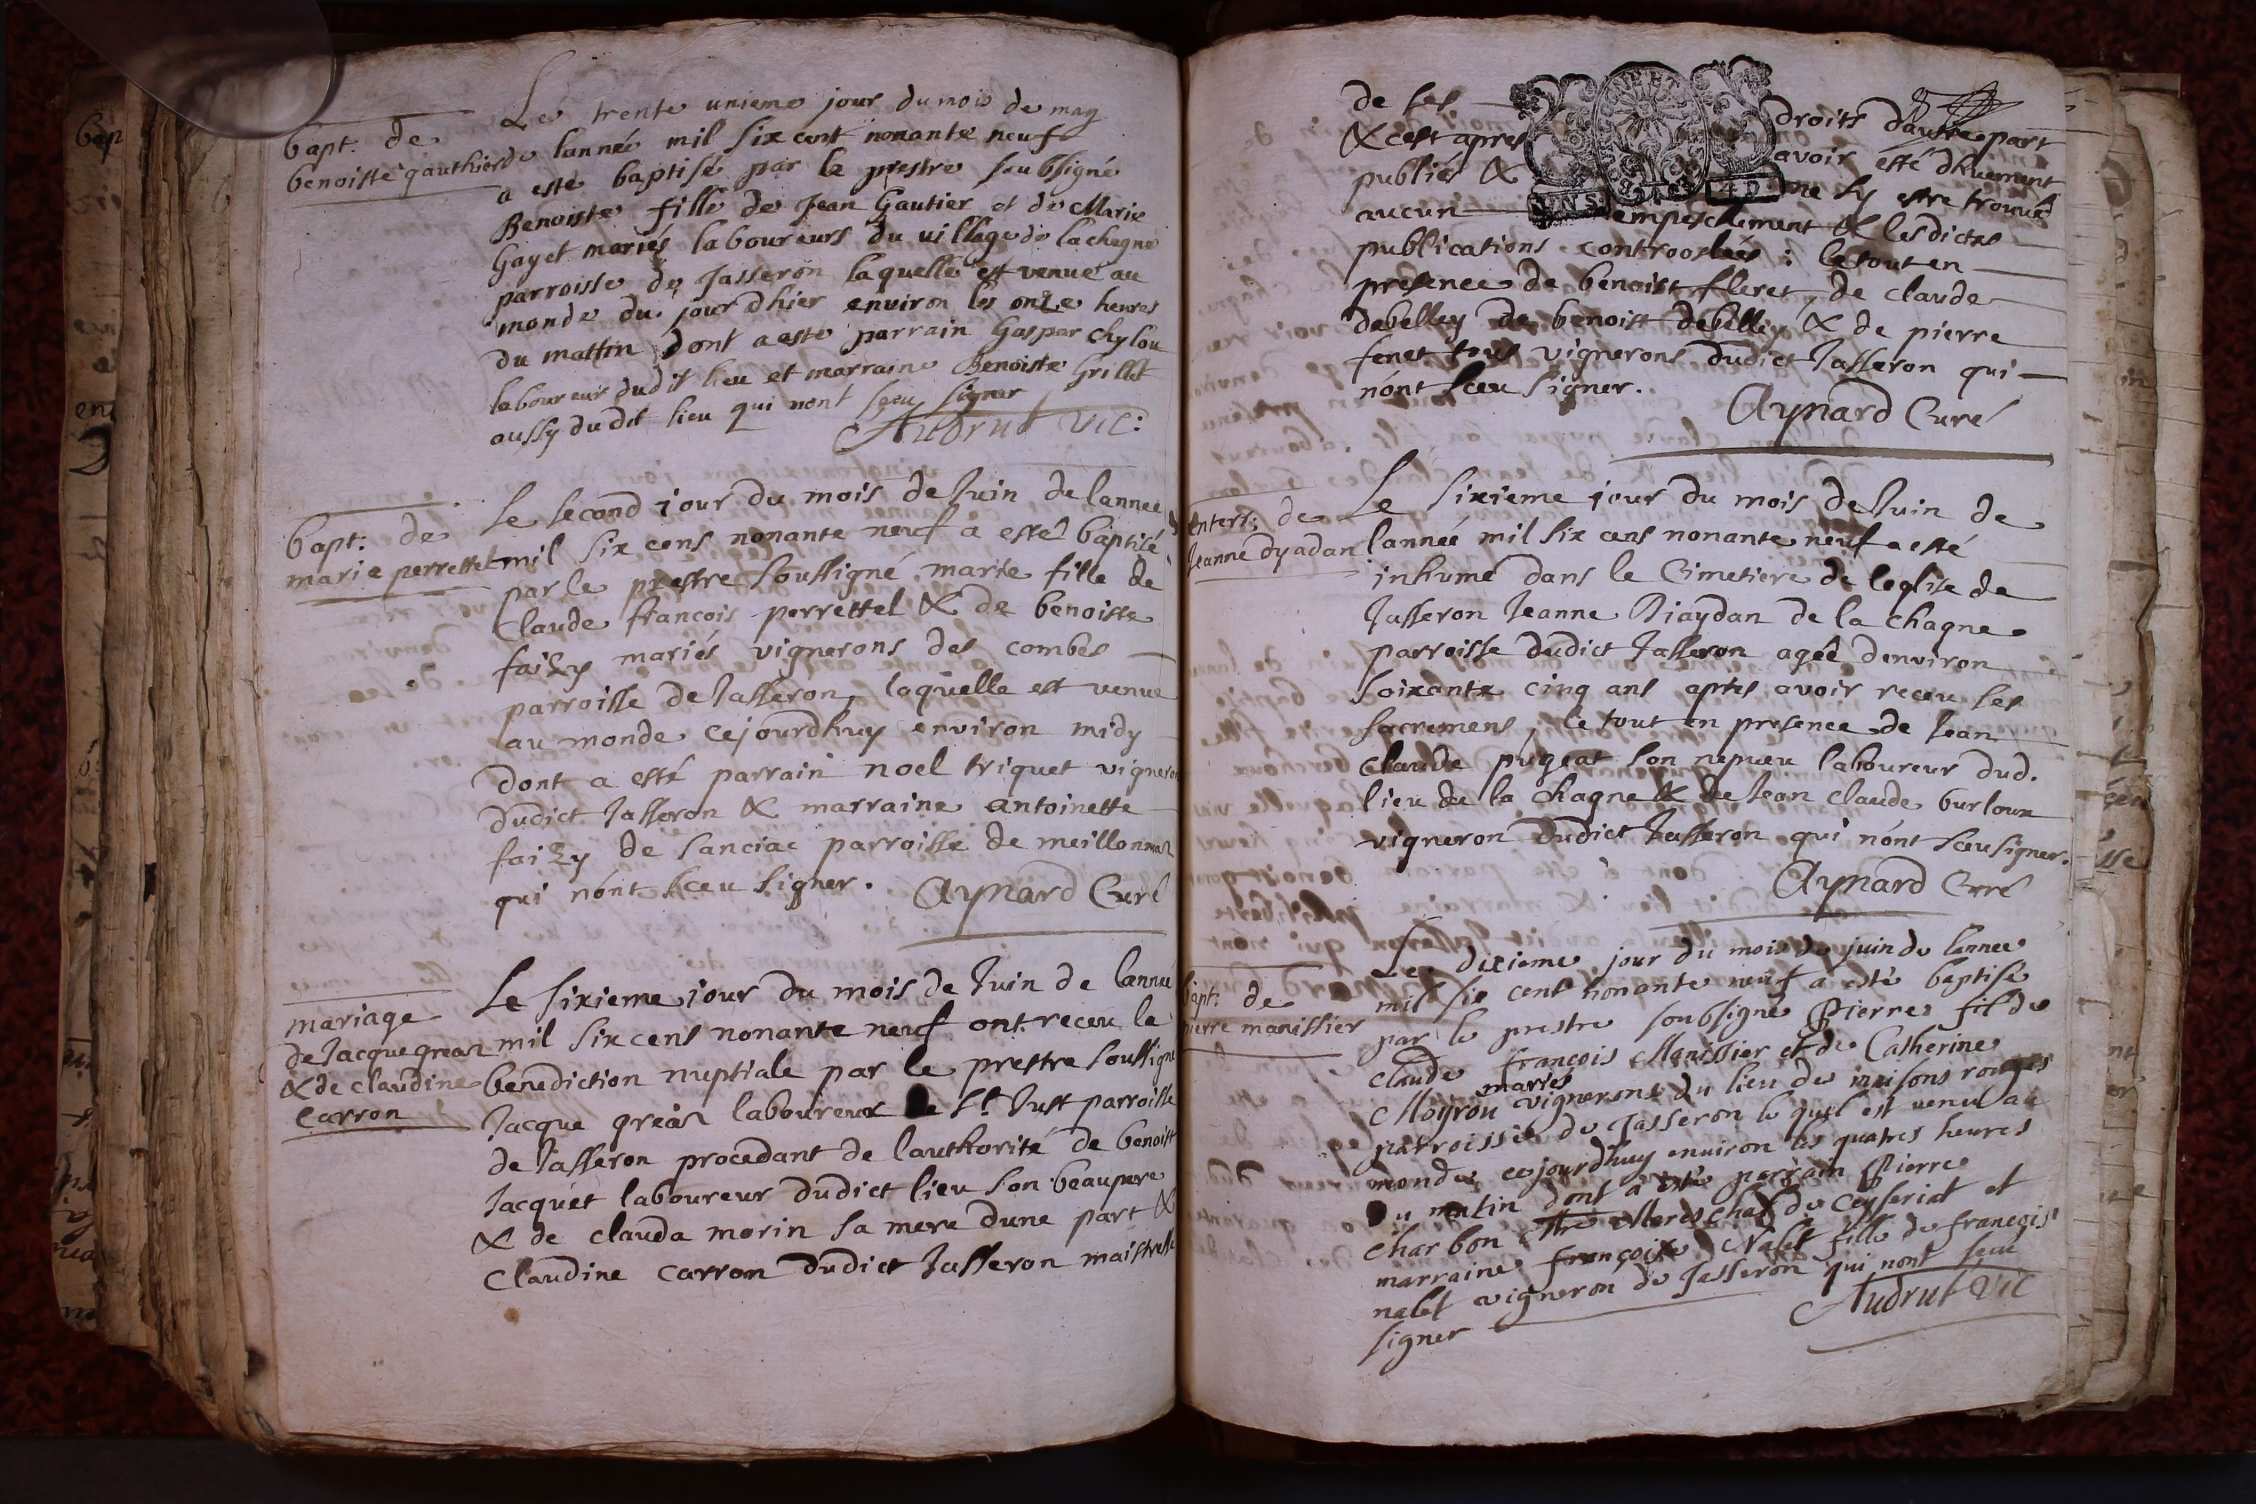 bapt: de
benoiste gauthier
Le trente unieme jour du mois de may
de lannée mil six cent nonante neuf
a esté baptisé par le prestre soubsigné
Benoiste fille de Jean Gautier et de Marie
Gayet mariés laboureurs du village de lachagne
parroisse de Jasseron laquelle est venue au
monde du jour dhier environ les onze heures
du mattin dont a esté parrain Gaspar chylou
laboureur dudit lieu et marraine Benoiste Grillet
aussy dudit lieu qui nont sceu signer
Audrut vic:
bapt: de
marie perrettel
Le second jour du mois de Juin de lannee
mil six cens nonante neuf a esté baptisé
par le prestre soussigné marie fille de
Claude francois perrettel & de benoiste
faizy mariés vignerons des combes
parroisse de Jasseron, laquelle est venue
au monde cejourdhuy environ midy
dont a esté parrain noel triquet vigneron
dudict Jasseron & marraine antoinette
faizy de sanciac parroisse de meillonnaz
qui nónt sceu signer. Aynard Curé
mariage
de Jacque greaz
& de claudine
carron
Le sixieme jour du mois de Juin de lannee
mil six cens nonante neuf ont receu la
benediction nuptiale par le prestre soussigné
Jacque greaz laboureur de St. Just parroisse
de Jasseron procedant de lauthorité de benoist
Jacquet laboureur dudict lieu son beaupere
& de clauda morin sa mere dune part &
Claudine carron dudict Jasseron maistresse
de ses droits dautre part
& cest apres avoir esté dhuement
publiés & ne sy estre trouvé
aucun empeschement & lesdictes
publications controoslées : le tout en
presence de benoist fleret, de claude
debelley de benoist debelley & de pierre
fenet tous vignerons dudict Jasseron qui
nónt sceu signer.
Aynard Curé
enterr: de
Jeanne dyadan
Le sixieme jour du mois de Juin de
lannée mil six cens nonante neuf a esté
inhumé dans le Cimetiere de leglise de
Jasseron Jeanne Diaydan de la chagne
parroisse dudict Jasseron agêê denviron
soixante cinq ans apres avoir receu les
sacremens, le tout en presence de Jean
claude pugeat son nepveu laboureur dud.
lieu de la chagne & de Jean claude burloux
vigneron dudict Jasseron qui nónt sceu signer.
Aynard Curé
bapt: de
pierre manissier
Le dixieme jour du mois de juin de lannee
mil six cent nonante neuf a esté baptisé
par le prestre soubsigné Pierre fil de
claude françois Manissier et de Catherine
Moyrou mariés vignerons du lieu de maisons rouges
parroisse de Jasseron le quel est venu au
monde cejourdhuy environ les quatres heures
du matin dont a esté parrain Pierre
charbon Me Mareschal de Ceyseriat et
marraine françoise Nalet fille de françois
nalet vigneron de Jasseron qui nont sceu
signer
Audrut vic